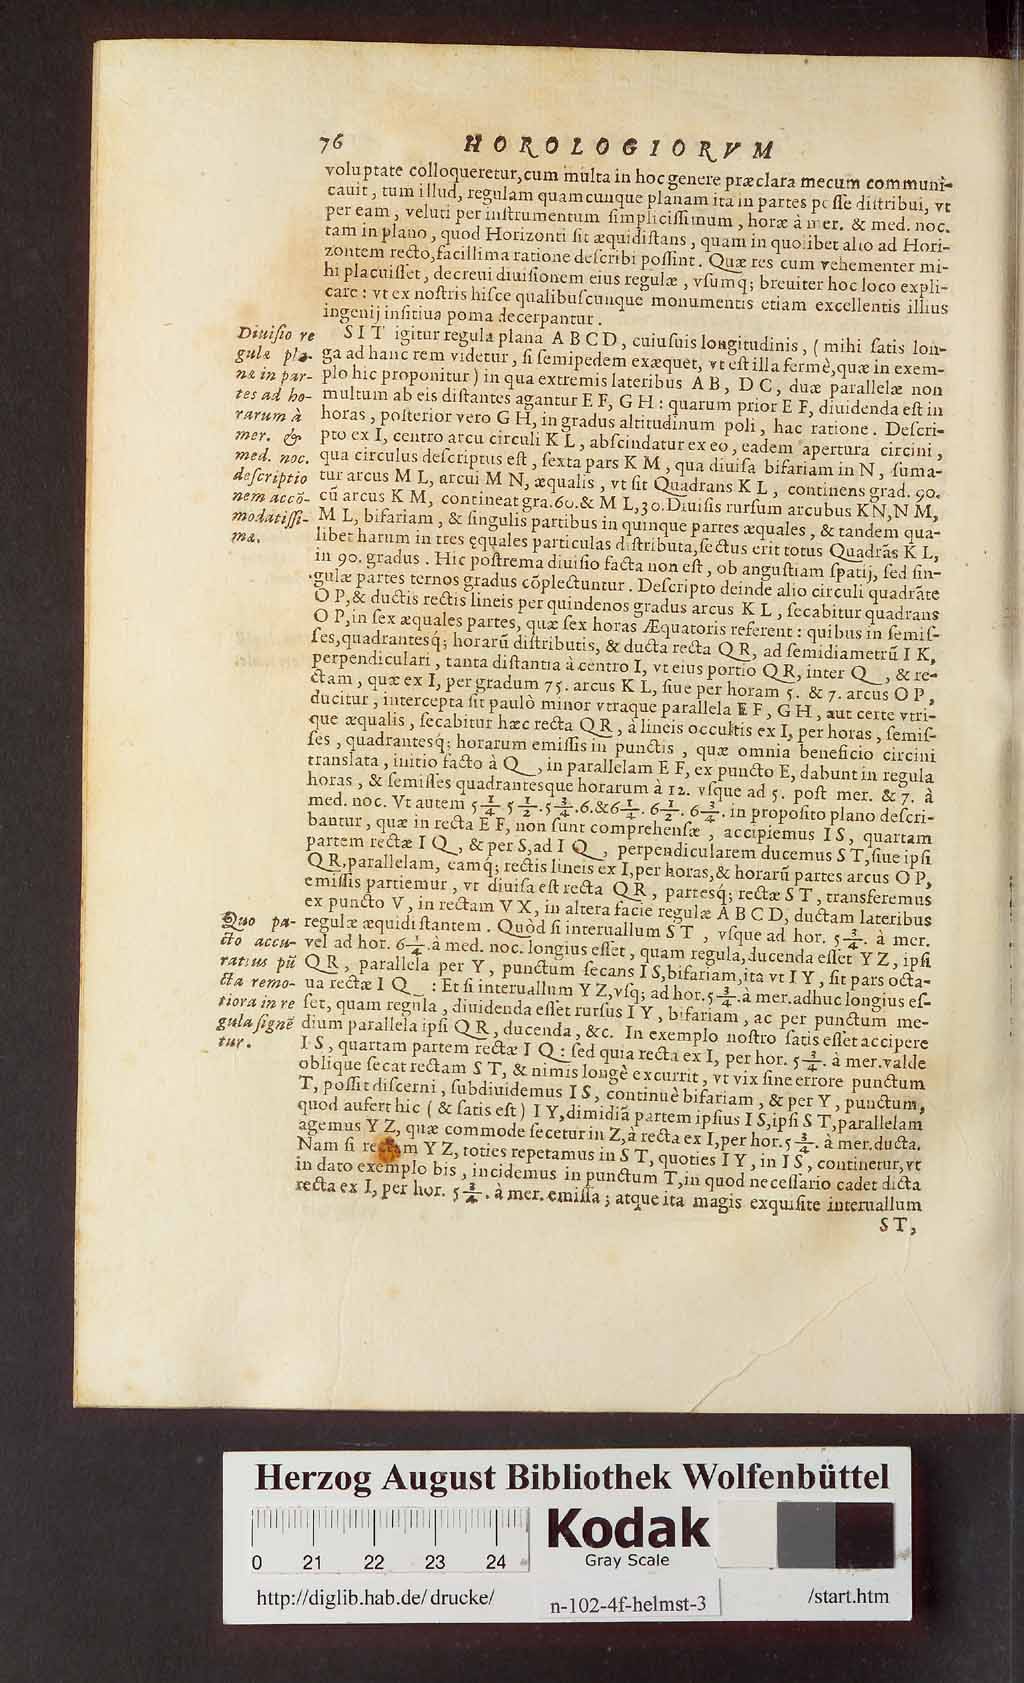 76 HOROLOGIORVM
voluptate colloqueretur, cum multa in hoc genere præclara mecum communi-
cauit, tum illud, regulam quamcunque planam ita in partes posse distribui, vt
per eam, veluti per instrumentum simplicissimum, horæ à mer. & med. noc.
tam in plano, quod Horizonti sit æquidistans, quam in quolibet alio ad Hori-
zontem recto, facillima ratione describi possint. Quæ res cum vehementer mi-
hi placuisset, decreui diuisionem eius regulæ, vsumq́; breuiter hoc loco expli-
care: vt ex nostris hisce qualibuscunque monumentis etiam excellentis illius
ingenij insitiua poma decerpantur.
Diuisio re
gulæ pla-
næ in par-
tes ad ho-
rarum à
mer. &
med. noc.
descriptio
nem accō-
modatissi-
ma.
SIT igitur regula plana A B C D, cuiusuis longitudinis, (mihi satis lon-
ga ad hanc rem videtur, si semipedem exæquet, vt est illa fermè, quæ in exem-
plo hic proponitur) in qua extremis lateribus A B, D C, duæ parallelæ non
multum ab eis distantes agantur E F, G H: quarum prior E F, diuidenda est in
horas, posterior vero G H, in gradus altitudinum poli, hac ratione. Descri-
pto ex I, centro arcu circuli K L, abscindatur ex eo, eadem apertura circini,
qua circulus descriptus est, sexta pars K M, qua diuisa bifariam in N, suma-
tur arcus M L, arcui M N, æqualis, vt sit Quadrans K L, continens grad. 90.
cū arcus K M, contineat gra. 60. & M L, 30. Diuisis rursum arcubus K N, N M,
M L, bifariam, & singulis partibus in quinque partes æquales, & tandem qua-
libet harum in tres ęquales particulas distributa, sectus erit totus Quadrās K L,
in 90. gradus. Hic postrema diuisio facta non est, ob angustiam spatij, sed sin-
gulæ partes ternos gradus cōplectuntur. Descripto deinde alio circuli quadrāte
O P, & ductis rectis lineis per quindenos gradus arcus K L, secabitur quadrans
O P, in sex æquales partes, quæ sex horas Æquatoris referent: quibus in semis-
ses, quadrantesq́; horarū distributis, & ducta recta Q R, ad semidiametrū I K,
perpendiculari, tanta distantia à centro I, vt eius portio Q R, inter Q, & re-
ctam, quæ ex I, per gradum 75. arcus K L, siue per horam 5. & 7. arcus O P,
ducitur, intercepta sit paulò minor vtraque parallela E F, G H, aut certe vtri-
que æqualis, secabitur hæc recta Q R, à lineis occultis ex I, per horas, semis-
ses, quadrantesq́; horarum emissis in punctis, quæ omnia beneficio circini
translata, initio facto à Q, in parallelam E F, ex puncto E, dabunt in regula
horas, & semisses quadrantesque horarum à 12. vsque ad 5. post mer. & 7. à
med. noc. Vt autem 5 1/4. 5 1/2. 5 3/4. 6. & 6 1/4. 6 1/2. 6 3/4. in proposito plano descri-
bantur, quæ in recta E F, non sunt comprehensæ, accipiemus I S, quartam
partem rectæ I Q, & per S, ad I Q, perpendicularem ducemus S T, siue ipsi
Q R, parallelam, eamq́; rectis lineis ex I, per horas, & horarū partes arcus O P,
emissis partiemur, vt diuisa est recta Q R, partesq́; rectæ S T, transferemus
ex puncto V, in rectam V X, in altera facie regulæ A B C D, ductam lateribus
Quo pa-
cto accu-
ratius pū
cta remo-
tiora in re
gula signē
tur.
regulæ æquidistantem. Quòd si interuallum S T, vsque ad hor. 5 3/4. à mer.
vel ad hor. 6 1/4. à med. noc. longius esset, quam regula, ducenda esset Y Z, ipsi
Q R, parallela per Y, punctum secans I S, bifariam, ita vt I Y, sit pars octa-
ua rectæ I Q: Et si interuallum Y Z, vsq; ad hor. 5 3/4. à mer. adhuc longius es-
set, quam regula, diuidenda esset rursus I Y, bifariam, ac per punctum me-
dium parallela ipsi Q R, ducenda, &c. In exemplo nostro satis esset accipere
I S, quartam partem rectæ I Q: sed quia recta ex I, per hor. 5 3/4. à mer. valde
oblique secat rectam S T, & nimis longè excurrit, vt vix sine errore punctum
T, possit discerni, subdiuidemus I S, continuè bifariam, & per Y, punctum,
quod aufert hic (& satis est) I Y, dimidiā partem ipsius I S, ipsi S T, parallelam
agemus Y Z, quæ commode secetur in Z, à recta ex I, per hor. 5 3/4. à mer. ducta.
Nam si rectam Y Z, toties repetamus in S T, quoties I Y, in I S, continetur, vt
in dato exemplo bis, incidemus in punctum T, in quod necessario cadet dicta
recta ex I, per hor. 5 3/4. à mer. emissa; atque ita magis exquisite interuallum
S T,
Herzog August Bibliothek Wolfenbüttel
0 21 22 23 24
Kodak
Gray Scale
http://diglib.hab.de/drucke/ n-102-4f-helmst-3 /start.htm